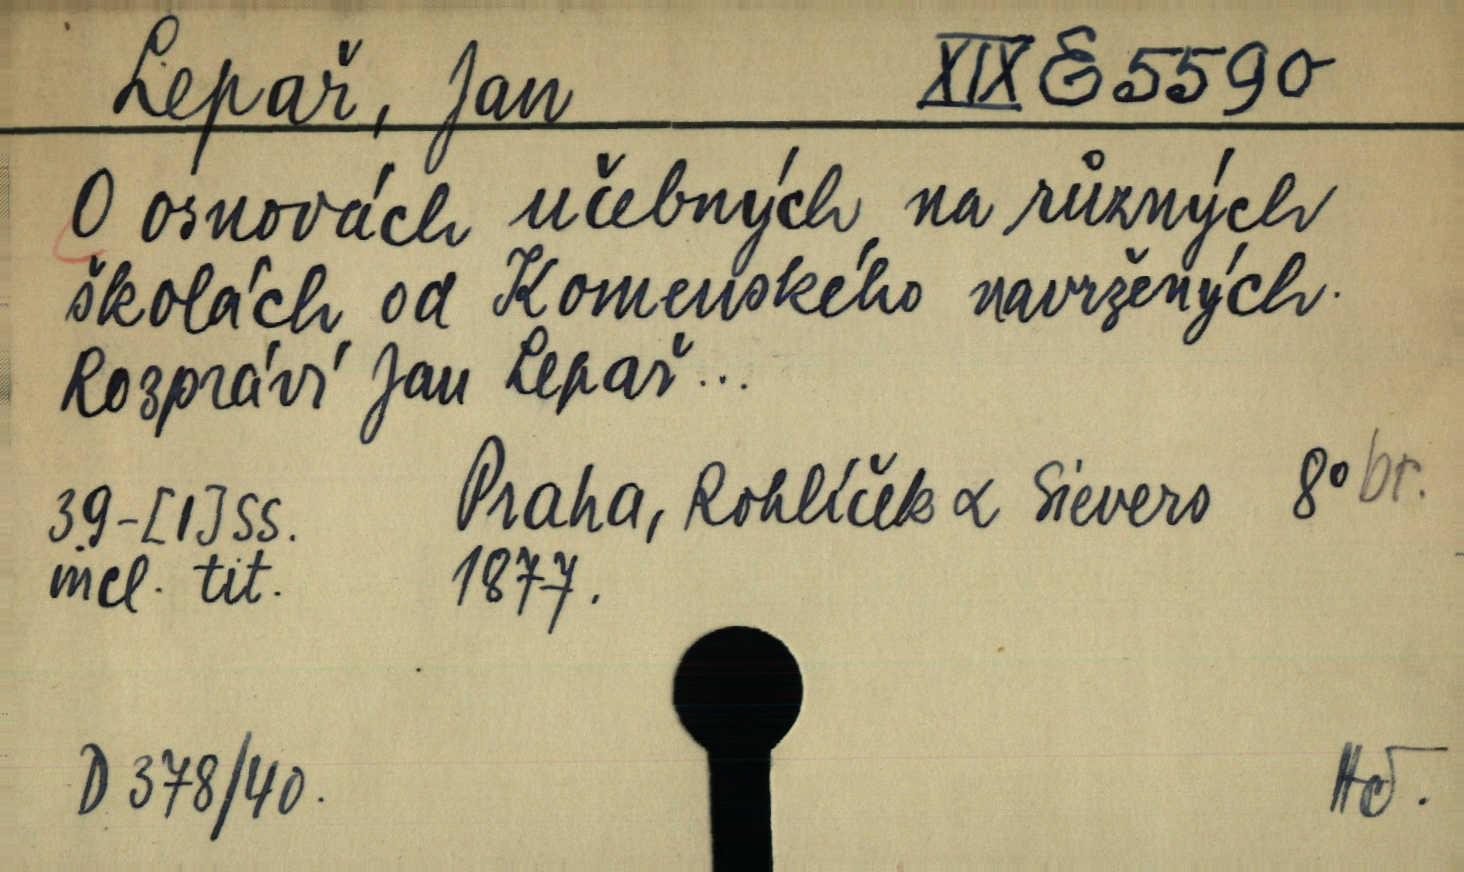 Lepař, Jan XIX E 5590
O osnovách učebných na různých
školách od Komenského navržených.
Rozpráví Jan Lepař...
39-[1]SS. Praha, Rohlíček & Sievers 8° br.
incl. tit. 1877.
D 378/40.